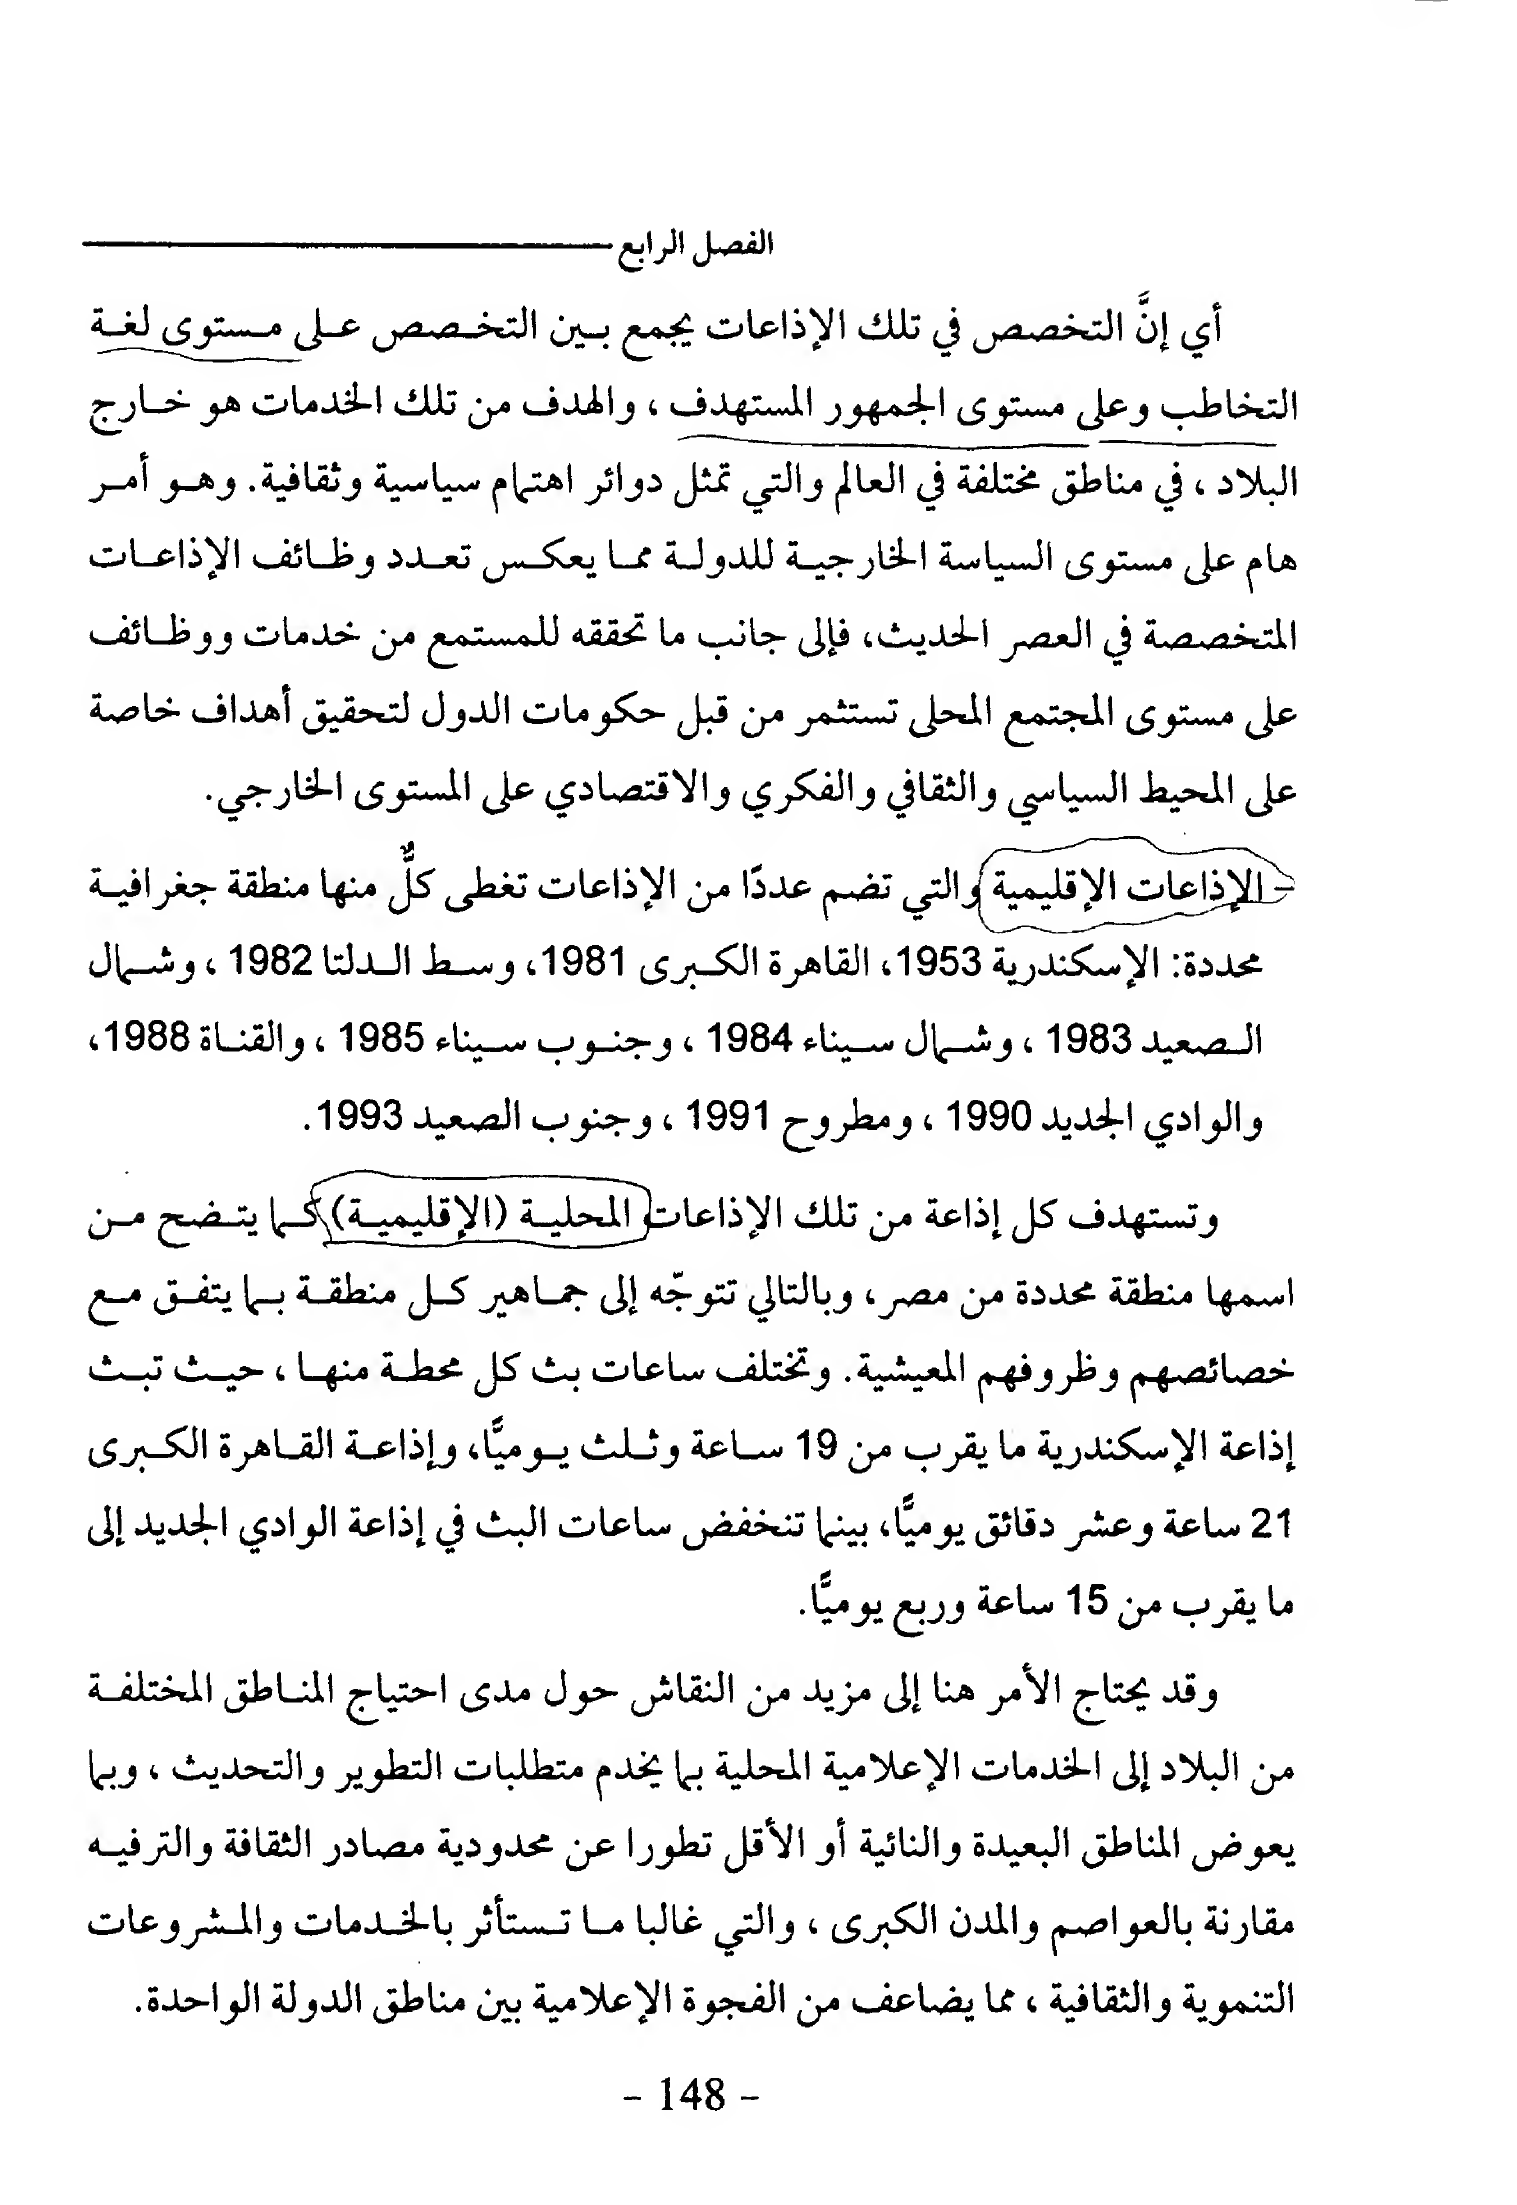 الفصل الرابع
أي إنَّ التخصص في تلك الإذاعات يجمع بين التخصص على مستوى لغة
التخاطب وعلى مستوى الجمهور المستهدف ، والهدف من تلك الخدمات هو خارج
البلاد ، في مناطق مختلفة في العالم والتي تمثل دوائر اهتمام سياسية وثقافية. وهو أمر
هام على مستوى السياسة الخارجية للدولة مما يعكس تعدد وظائف الإذاعات
المتخصصة في العصر الحديث، فإلى جانب ما تحققه للمستمع من خدمات ووظائف
على مستوى المجتمع المحلى تستثمر من قبل حكومات الدول لتحقيق أهداف خاصة
على المحيط السياسي والثقافي والفكري والاقتصادي على المستوى الخارجي.
- الإذاعات الإقليمية والتي تضم عددًا من الإذاعات تغطى كلٌّ منها منطقة جغرافية
محددة: الإسكندرية 1953، القاهرة الكبرى 1981، وسط الدلتا 1982 ، وشمال
الصعيد 1983 ، وشمال سيناء 1984 ، وجنوب سيناء 1985 ، والقناة 1988،
والوادي الجديد 1990 ، ومطروح 1991 ، وجنوب الصعيد 1993.
وتستهدف كل إذاعة من تلك الإذاعات المحلية (الإقليمية) كما يتضح من
اسمها منطقة محددة من مصر، وبالتالي تتوجّه إلى جماهير كل منطقة بما يتفق مع
خصائصهم وظروفهم المعيشية. وتختلف ساعات بث كل محطة منها ، حيث تبث
إذاعة الإسكندرية ما يقرب من 19 ساعة وثلث يوميًّا، وإذاعة القاهرة الكبرى
21 ساعة وعشر دقائق يوميًّا، بينما تنخفض ساعات البث في إذاعة الوادي الجديد إلى
ما يقرب من 15 ساعة وربع يوميًّا.
وقد يحتاج الأمر هنا إلى مزيد من النقاش حول مدى احتياج المناطق المختلفة
من البلاد إلى الخدمات الإعلامية المحلية بما يخدم متطلبات التطوير والتحديث ، وبما
يعوض المناطق البعيدة والنائية أو الأقل تطورا عن محدودية مصادر الثقافة والترفيه
مقارنة بالعواصم والمدن الكبرى ، والتي غالبا ما تستأثر بالخدمات والمشروعات
التنموية والثقافية ، مما يضاعف من الفجوة الإعلامية بين مناطق الدولة الواحدة.
- 148 -